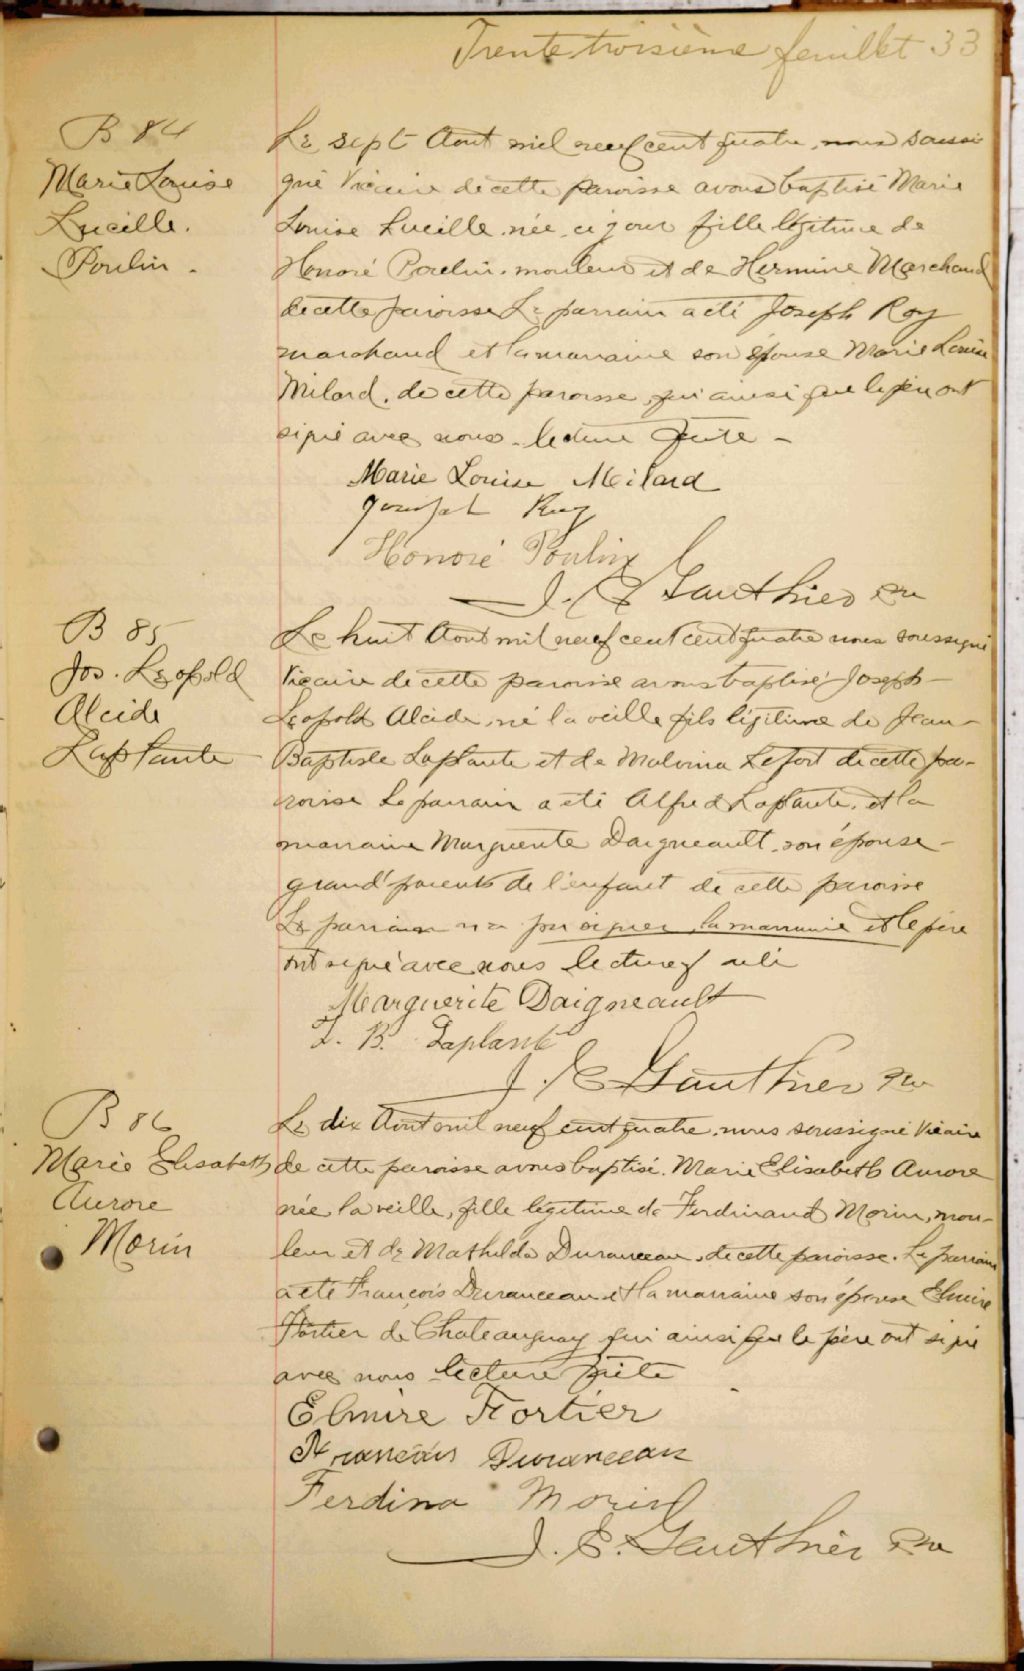 Trente troisième feuillet 33
B 84
Marie Louise
Lucille.
Poulin.
Le sept Aout mil neuf cent quatre, nous soussi
gné Vicaire de cette paroisse avons baptisé Marie
Louise Lucille, née ce jour fille légitime de
Honoré Poulin, mouleur et de Hermine Marchand
de cette paroisse Le parrain a été Joseph Roy
marchand et la marraine son épouse Marie Louise
Milard, de cette paroisse, qui ainsi que le père ont
signé avec nous. lecture faite -
Marie Louise Meilard
Joseph Roy
Honoré Poulin
J. E Gauthier Ptre
B 85
Jos. Léopold
Alcide
Laplante
Le huit Aout mil neuf cent cent quatre nous soussigné
Vicaire de cette paroisse avons baptisé Joseph-
Léopold Alcide, né la veille fils légitime de Jean-
Baptiste Laplante et de Malvina Lefort de cette pa-
roisse Le parrain a été Alfred Laplante, et la
marraine Marguerite Daigneault, son épouse-
grand'parents de l'enfant de cette paroisse
Le parrain n'a pu signer, la marraine et le père
ont signé avec nous lecture faite
Marguerite Daigneault
J. B. Laplante
J. E Gauthier Ptre
B 86
Marie Elisabeth
Aurore
Morin
Le dix Aout mil neuf cent quatre, nous soussigné Vicaire
de cette paroisse avons baptisé. Marie Elisabeth Aurore
née la veille, fille légitime de Ferdinand Morin, mou-
leur et de Mathilda Duranceau, de cette paroisse. Le parrain
a été François Duranceau et la marraine son épouse Elmire
Fortier de Chateauguay qui ainsi que le père ont signé
avec nous lecture faite
Elmire Fortier
François Duranceau
Ferdina Morin
J. E. Gauthier Ptre